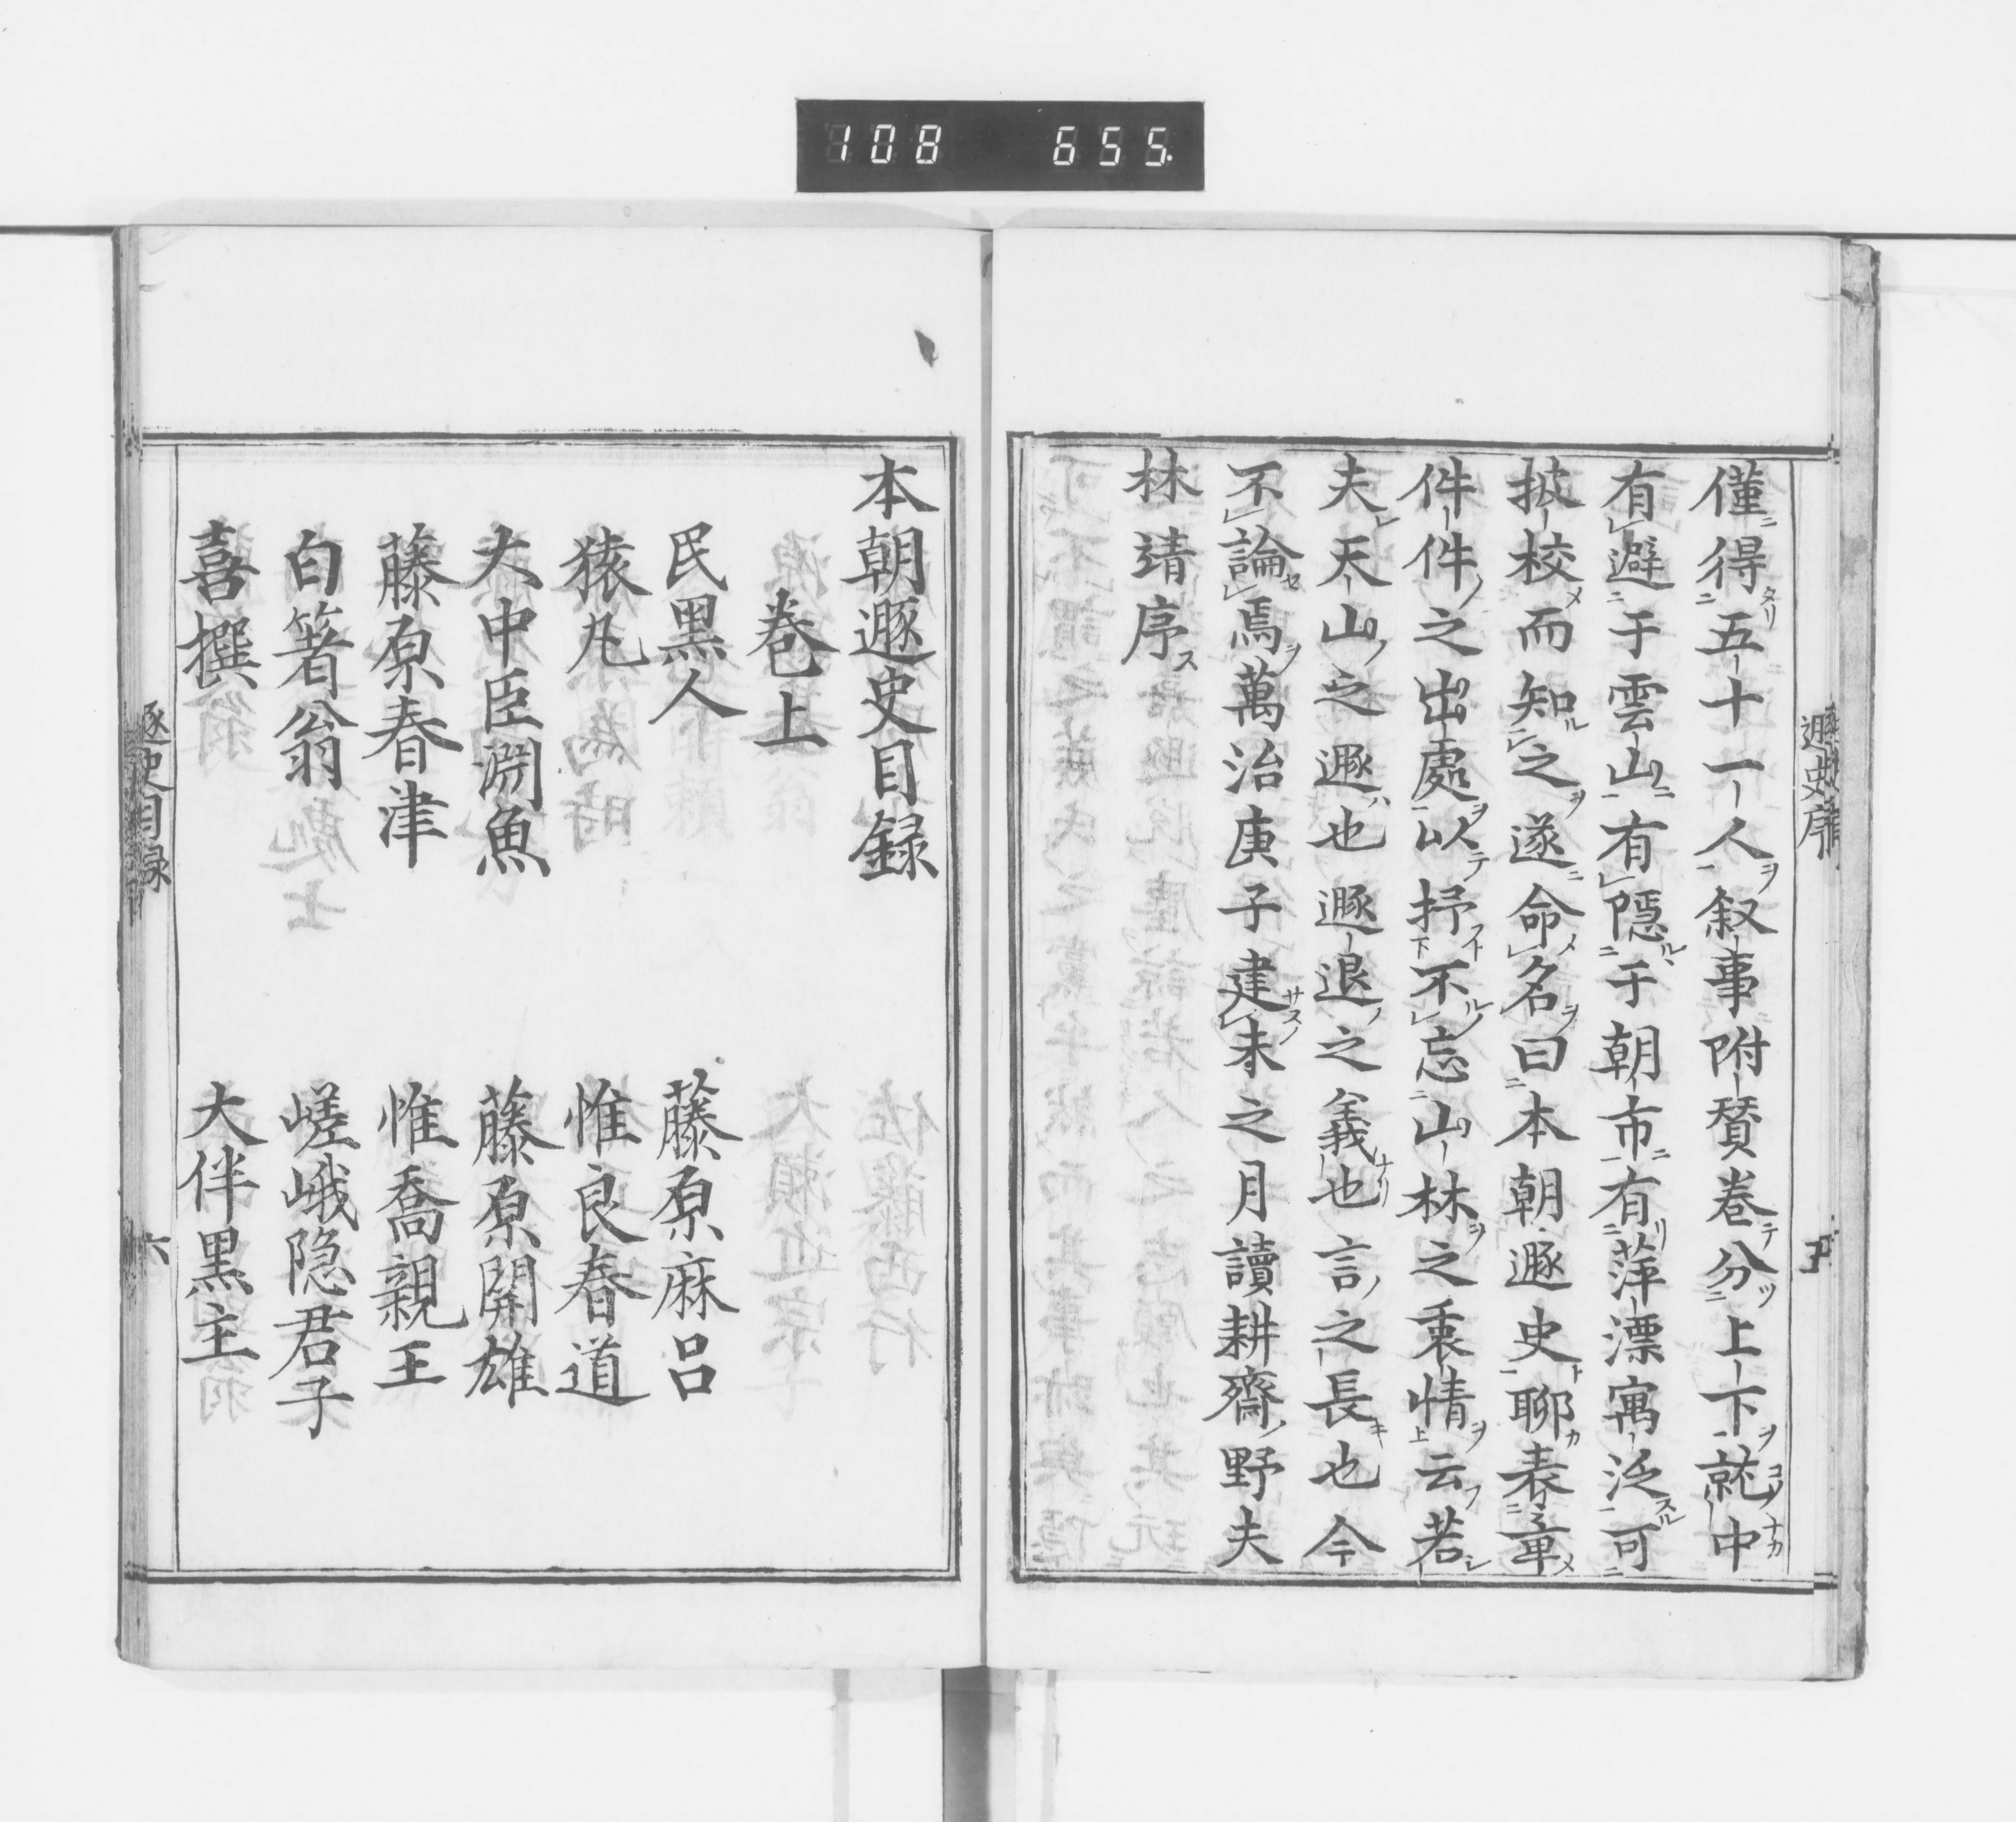 108 655.
僅得五十一人叙事附賛卷分上下就中
有避于雲山有隱于朝市有萍漂寓泛可
披校而知之遂命名曰本朝遯史聊表章
件件之出處以抒不忘山林之素情云若
夫天山之遯也遯退之義也言之長也今
不論焉萬治庚子建未之月讀耕齋野夫
林靖序
遯史序
五
本朝遯史目録
卷上
民黒人
藤原麻呂
猿丸
惟良春道
大中臣淵魚
藤原關雄
藤原春津
惟喬親王
白箸翁
嵯峨隐君子
喜撰
大伴黒主
遯史目録
六